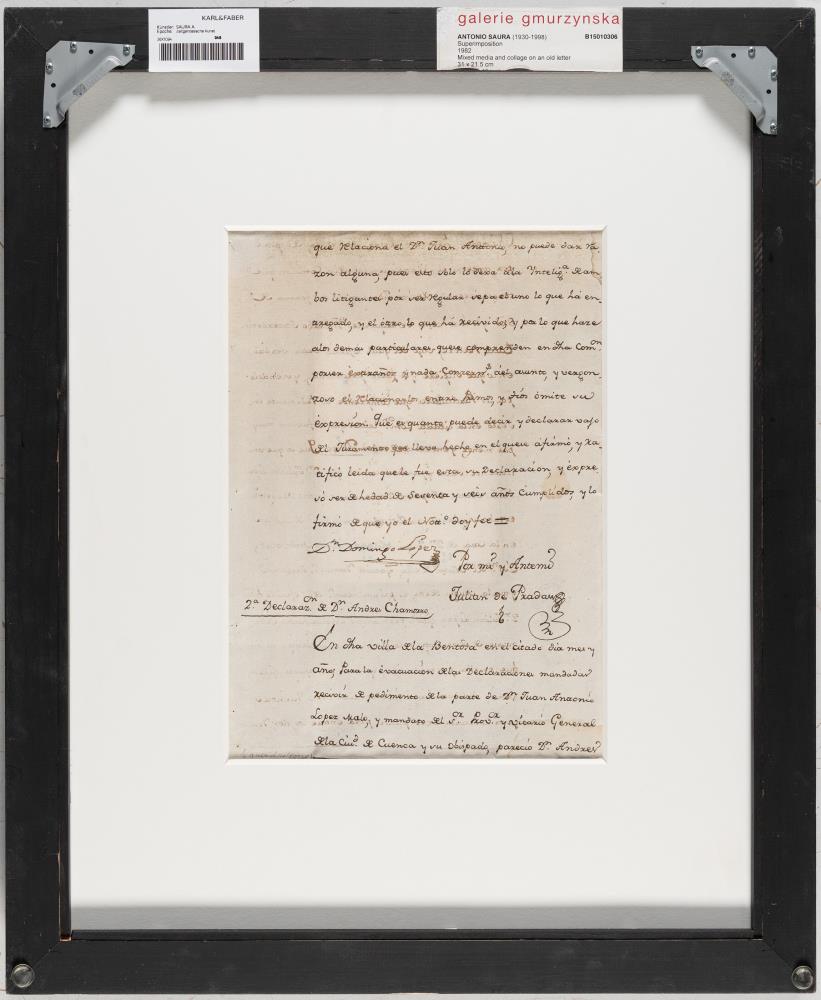 KARL&FABER
Künstler: SAURA A.
Epoche: Zeitgenössische Kunst
galerie gmurzynska
ANTONIO SAURA (1930-1998) B15010306
Superimposition
1982
Mixed media and collage on an old letter
31 x 21.5 cm
que relaciona el Dn. Juan Antonio, no puede dar ra
zon alguna, pues esto solo lo dexa
bos litigantes por ser regular sepa el uno lo que há en-
tregado, y el otro lo que há recivido, y pa lo que hace
alos demas particulares, que se comprenden en dha Comon.
por ser extraños y nada del asunto, y vergon-
zoso el relacionarlos entre hermos, y tios omite su
expresion. Que es quanto puede decir, y declarar vajo
del Juramento que lleva hecho en el que se afirmó, y ra-
tificó leida que le fue esta su Declaracion, y expre
só ser de hedad de Setenta y seis años Cumplidos, y lo
firmó de que yo el Noto. doy fee =
Dn. Domingo Lopez
Por mi y Antemi
Julian de Pradas
2a. Declarazon. de Dn. Andres Chamorro
En dha villa dela Bentosa en el citado dia mes y
año, Para la evacuacion delas Declaraciones mandadas
recivir de pedimento dela parte de Dn. Juan Antonio
Lopez Malo, y mandato del Sor. Provor. y vicario General
dela Ciud. de Cuenca y su obispado, parecio Dn. Andres